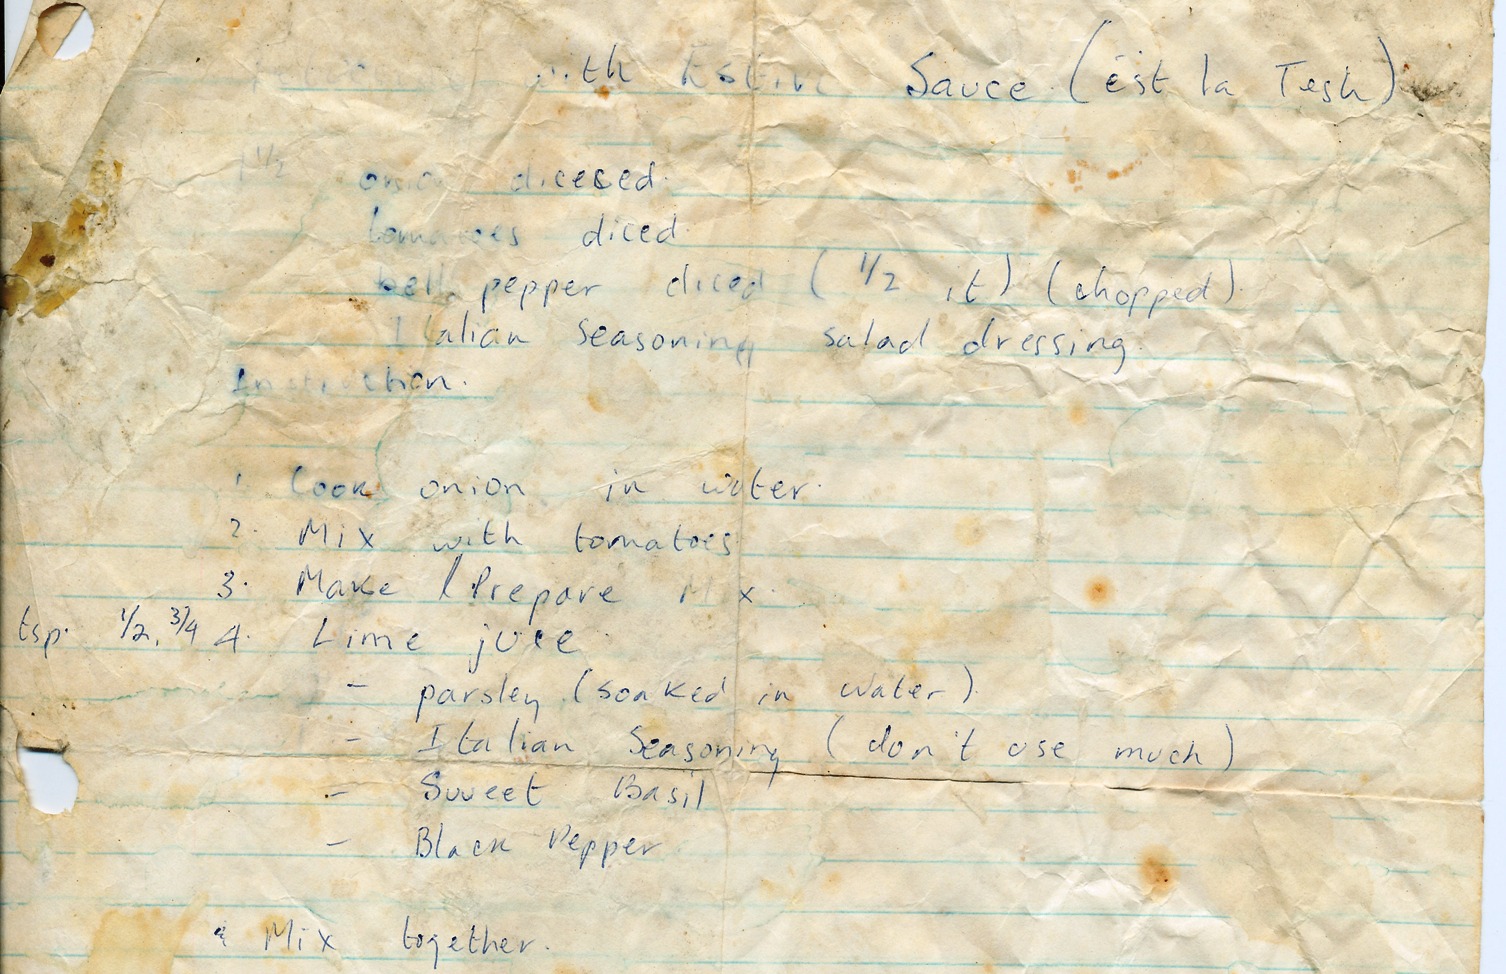 with Sauce (ést la Tesh)
1 1/2 onion diceed.
tomatoes diced.
bell pepper diced (1/2 it) (chopped).
Italian seasoning salad dressing.
Instruction.
1 Cook onion in water.
2. Mix with tomatoes
3. Make / Prepare Mix.
tsp. 1/2, 3/4 4. Lime juce
- parsley (soaked in water).
- Italian Seasoning (don't use much)
- Sweet Basil
- Black Pepper
Mix together.